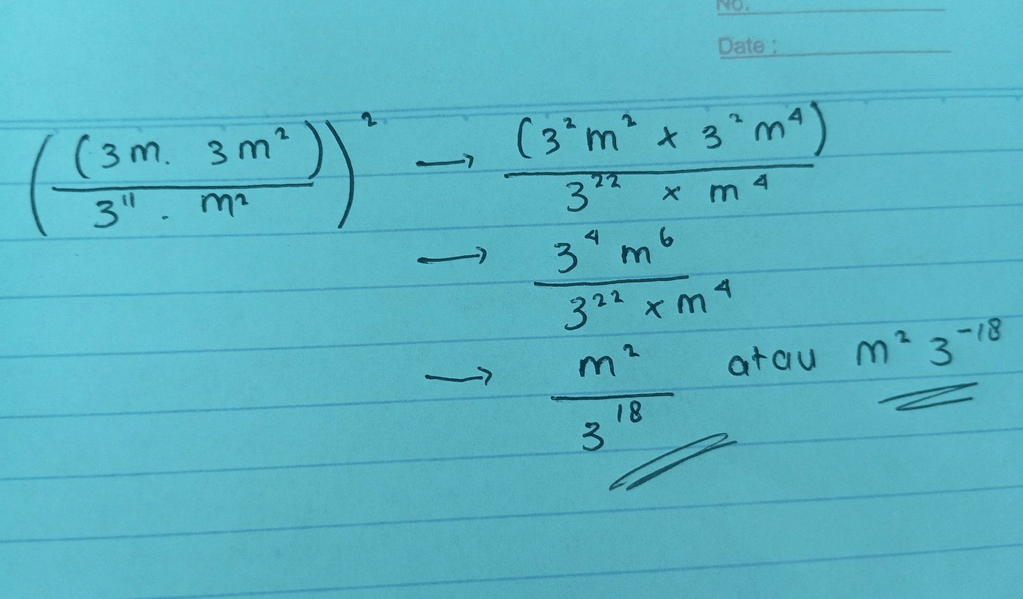 No.
Date :
((3m. 3m²) / 3¹¹ . m²)² → (3²m² × 3²m⁴) / 3²² × m⁴
→ 3⁴ m⁶ / 3²² × m⁴
→ m² / 3¹⁸ atau m² 3⁻¹⁸